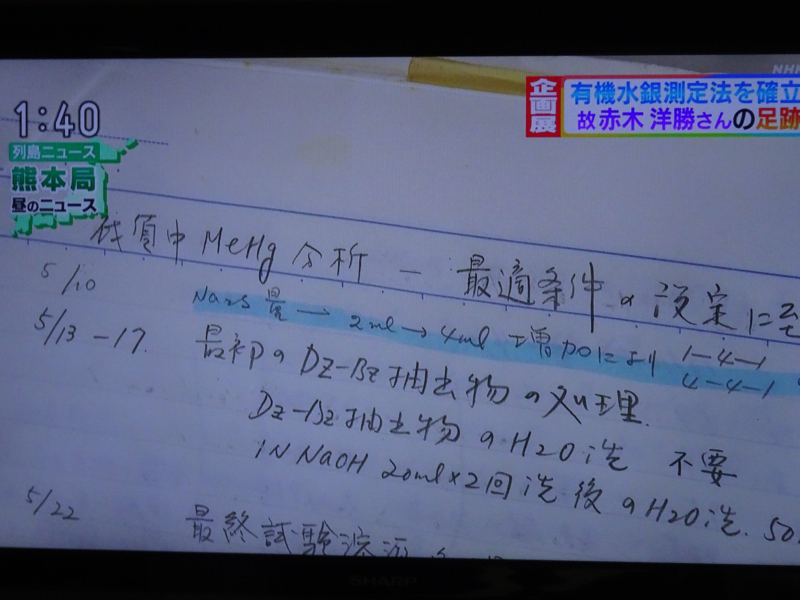 NHK
1:40
列島ニュース
熊本局
昼のニュース
企画展
有機水銀測定法を確立
故赤木 洋勝さんの足跡
底質中 MeHg 分析 － 最適条件の設定に至
5/10
Na2S 量 → 2ml → 4ml 増加により 1-4-1
4-4-1
5/13 -17. 最初の Dz-Bz抽出物の処理.
Dz-Bz抽出物のH2O洗 不要
1N NaOH 20ml×2回洗後のH2O洗. 50
5/22 最終試験溶液
SHARP